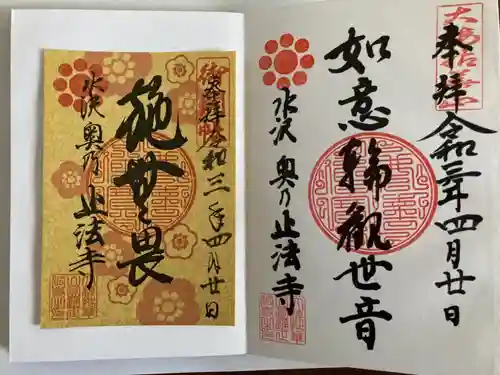 奉拝 令和三年四月廿日
如意輪観世音
水沢 奥乃 正法寺
奉拝 令和三年四月廿日
施無畏
水沢 奥乃 正法寺